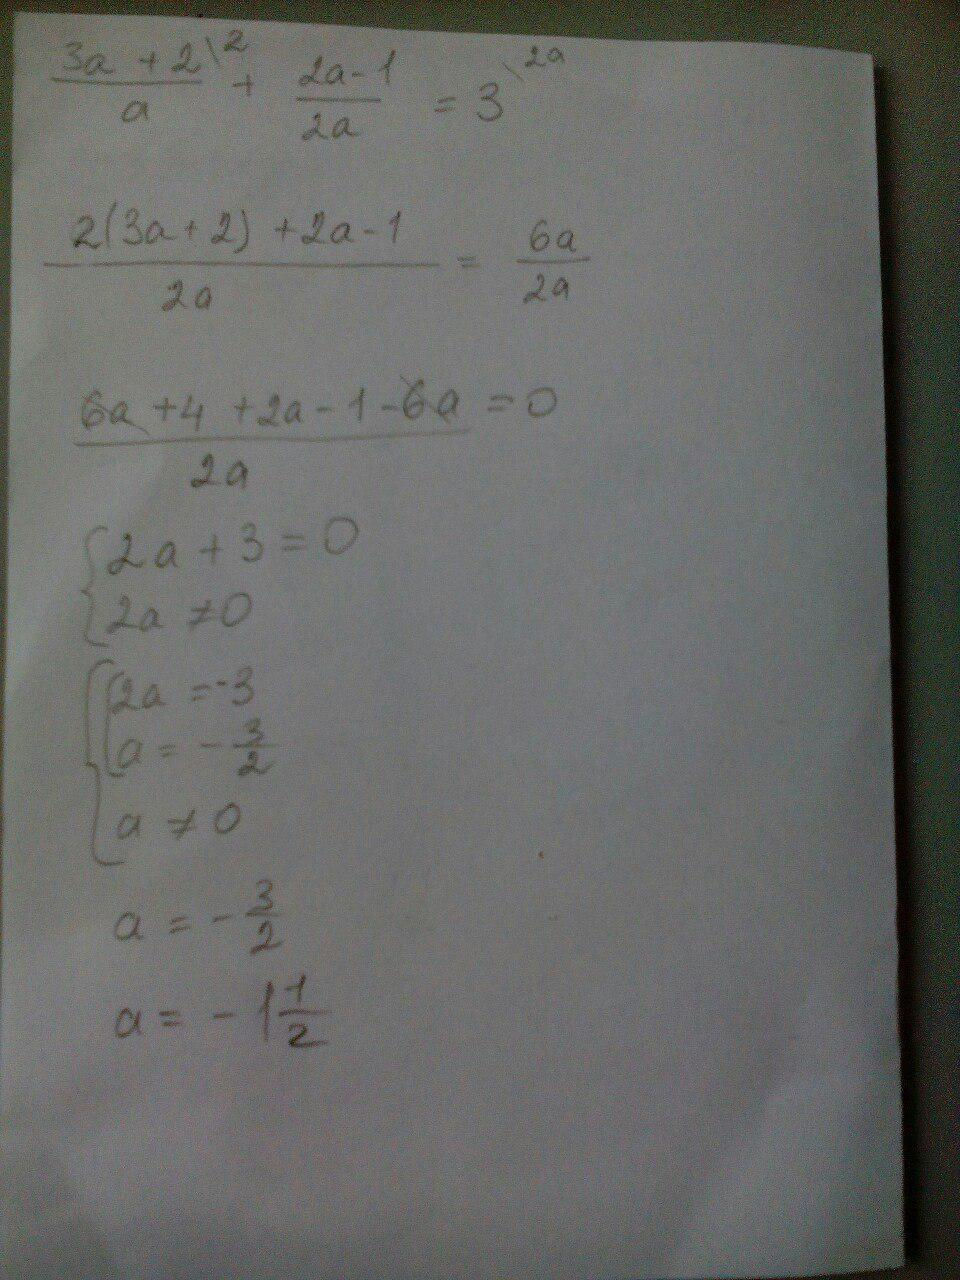 (3a + 2)/a \2 + (2a - 1)/2a = 3 \2a
(2(3a + 2) + 2a - 1)/2a = 6a/2a
(6a + 4 + 2a - 1 - 6a)/2a = 0
{ 2a + 3 = 0
2a ≠ 0
{ [ 2a = -3
a = - 3/2
a ≠ 0
a = - 3/2
a = - 1 1/2